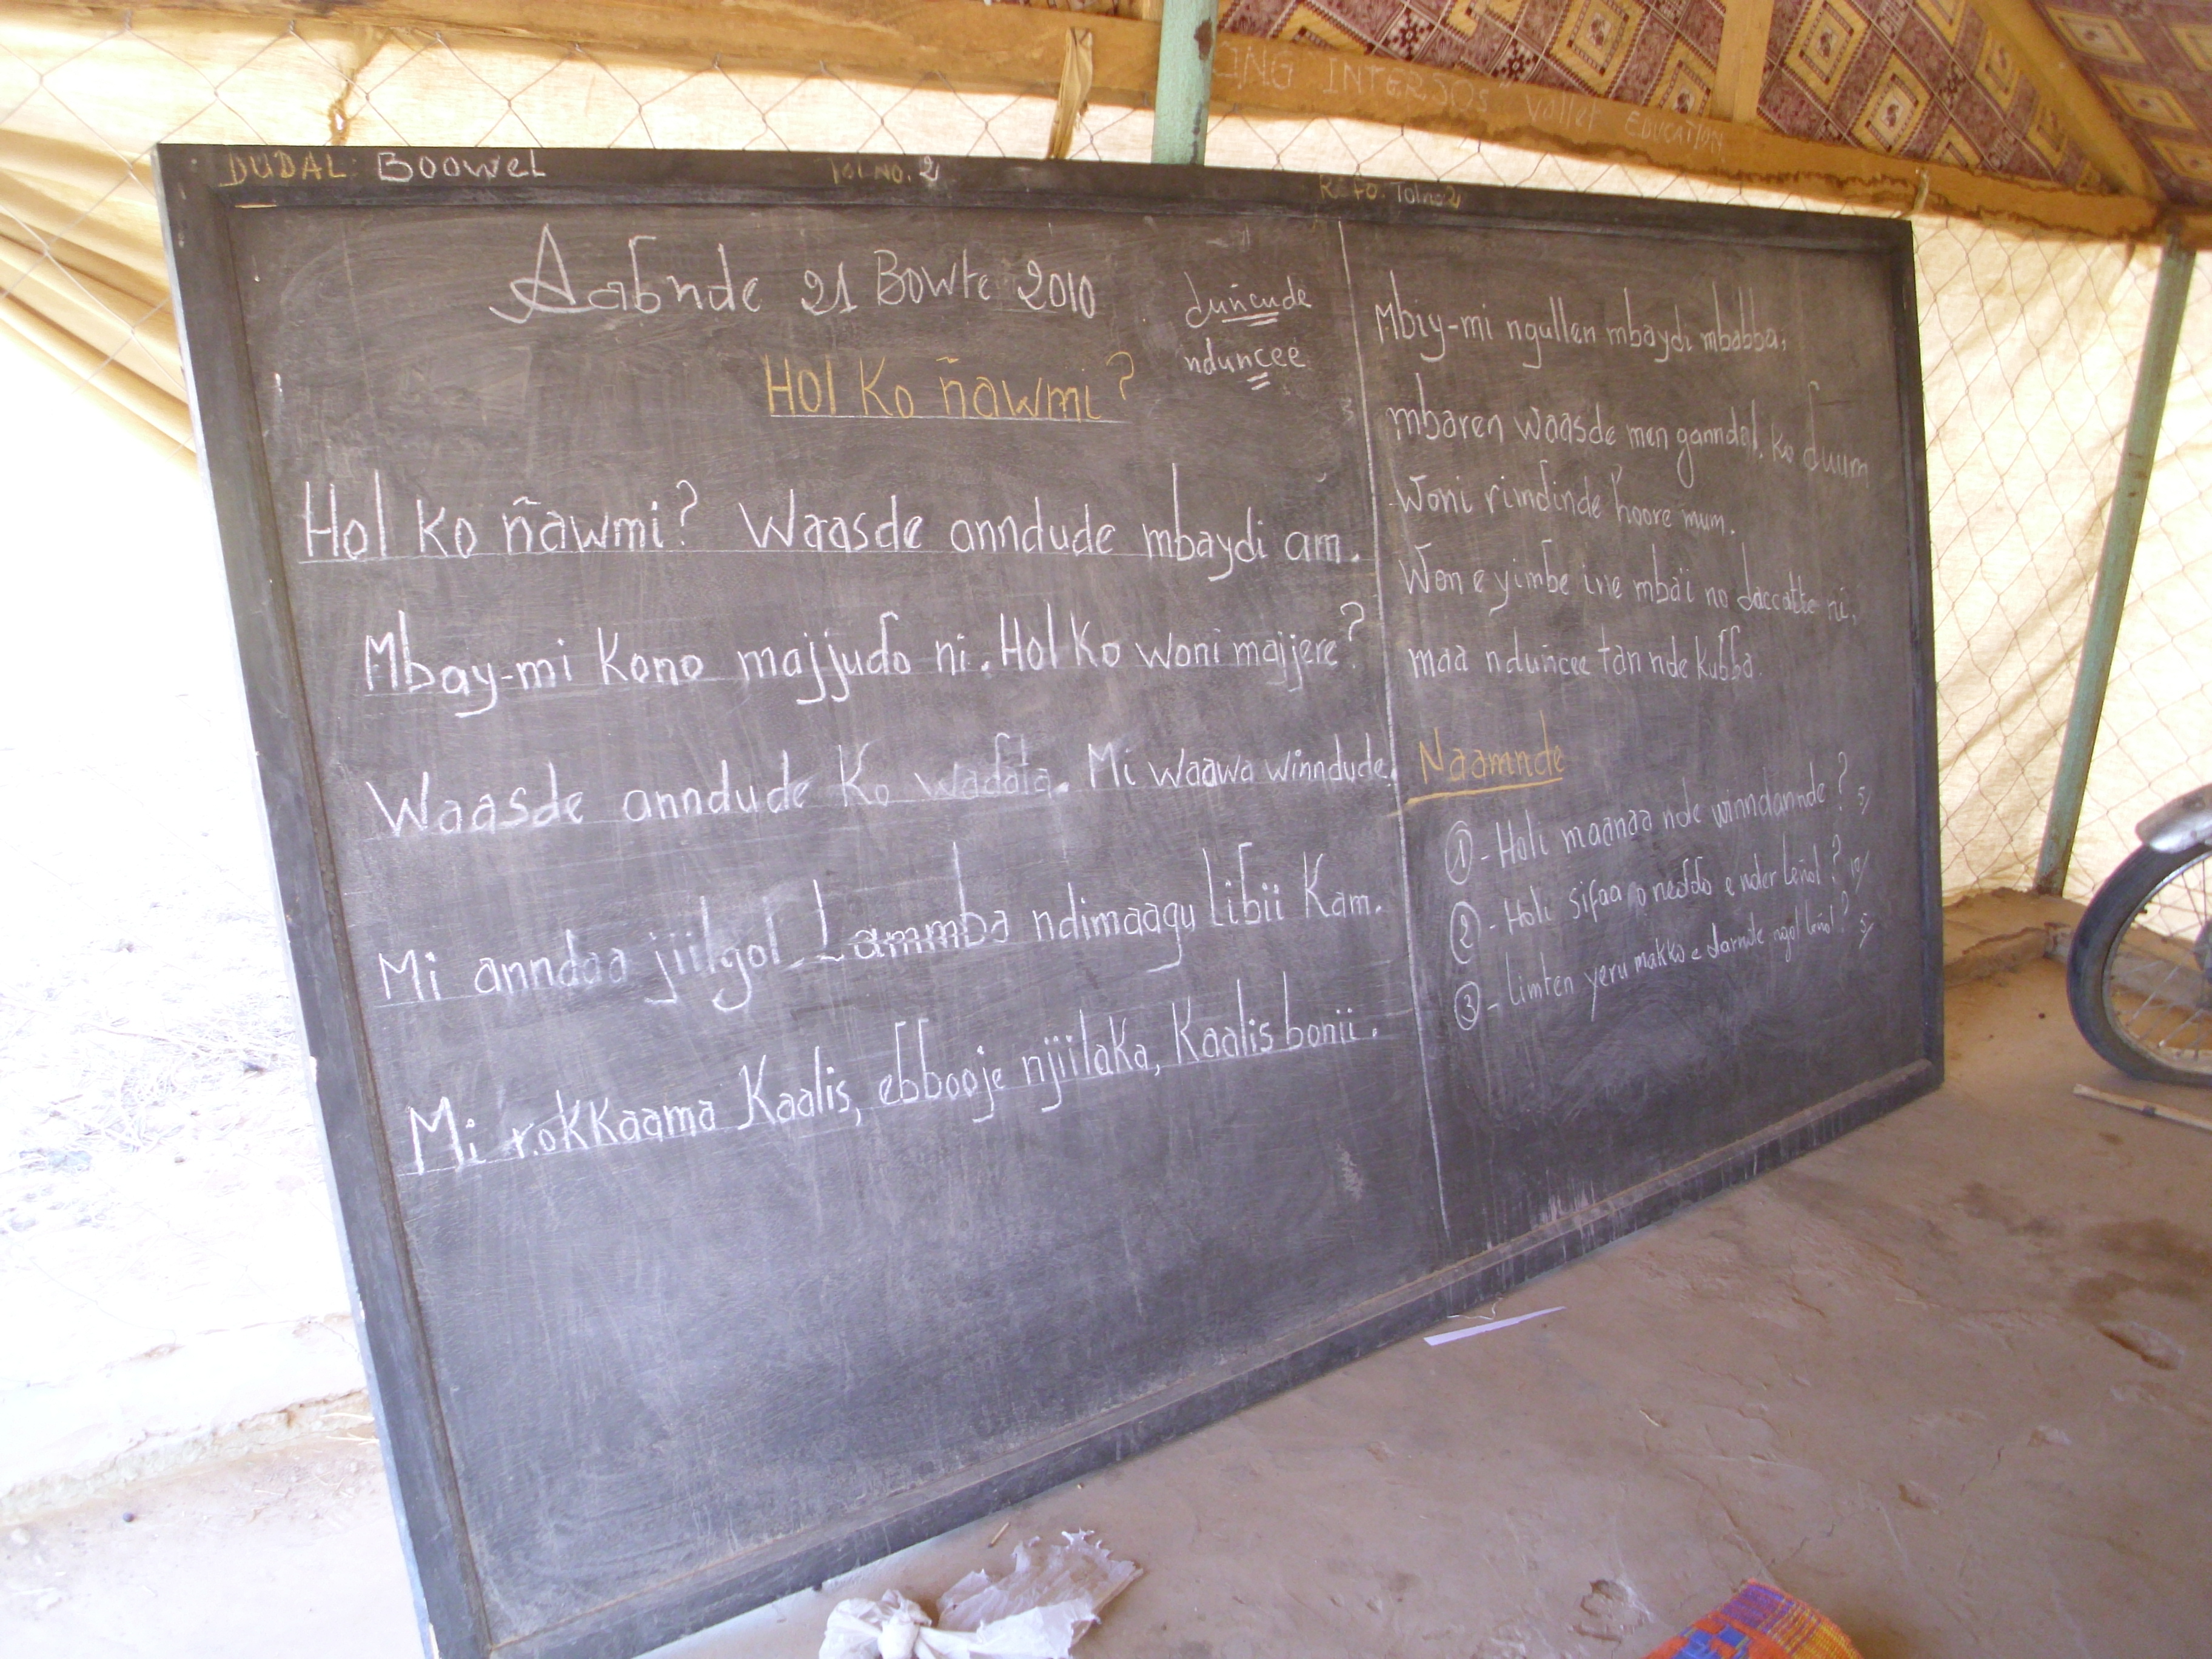 ING INTERSOS Vollet EDUCATION
DUDAL: Boowel
Tolno. 2
Tolno 2
Aaɓnde 21 Bowte 2010
duñcude
nduncee
Hol Ko ñawmi?
Hol Ko ñawmi? Waasde anndude mbaydi am.
Mbay-mi Kono majjuɗo ni. Hol Ko woni majjere?
Waasde anndude Ko waɗata. Mi waawa winndude.
Mi anndaa jiilgol. Lammba ndimaagu liɓii Kam.
Mi rokkaama Kaalis, eɓɓooje njiilaka, Kaalis bonii.
Mbiy-mi ngullen mbaydi mbaɓɓa,
mbaren waasde men ganndal. Ko ɗuum
Woni rimɗinde hoore mum.
Won e yimɓe ine mba'i no daccatte ni,
maa nduñcee tan nde kuɓɓa.
Naamnde
1 - Holi maanaa nde winndannde? 5/
2 - Holi sifaa o neɗɗo e nder leñol? 10/
3 - Limten yeru makko e darnde ngol leñol? 5/